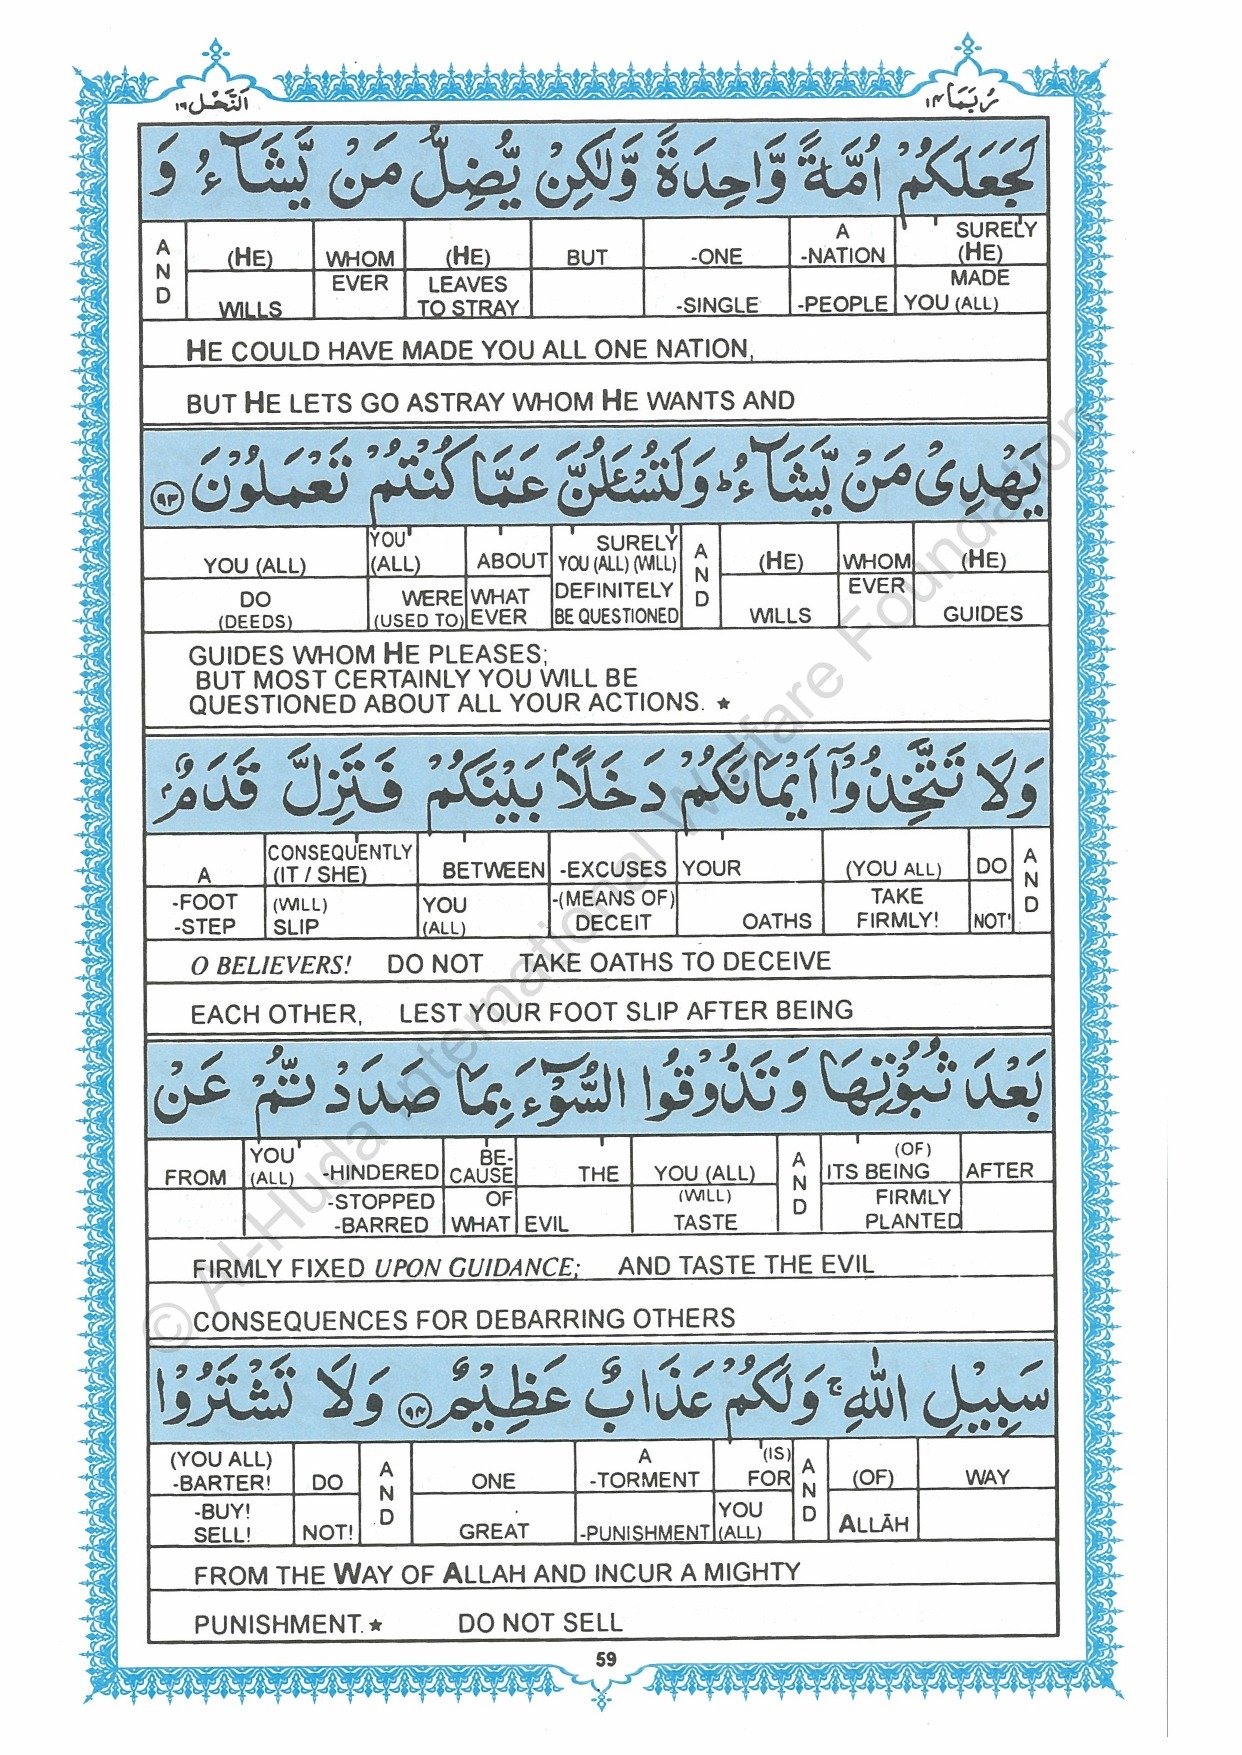 رُبَمَا ١٤
اَلنَّحْل ١٦
لَجَعَلَكُمْ اُمَّةً وَّاحِدَةً وَّلٰكِنْ يُّضِلُّ مَنْ يَّشَآءُ وَ
SURELY (HE) MADE YOU (ALL) | A -NATION -PEOPLE | -ONE -SINGLE | BUT | (HE) LEAVES TO STRAY | WHOM EVER | (HE) WILLS | AND
HE COULD HAVE MADE YOU ALL ONE NATION,
BUT HE LETS GO ASTRAY WHOM HE WANTS AND
يَهْدِىْ مَنْ يَّشَآءُ ؕ وَلَتُسْـَٔلُنَّ عَمَّا كُنْتُمْ تَعْمَلُوْنَ ٩٣
(HE) GUIDES | WHOM EVER | (HE) WILLS | AND | SURELY YOU (ALL) (WILL) DEFINITELY BE QUESTIONED | ABOUT WHAT EVER | YOU (ALL) WERE (USED TO) | YOU (ALL) DO (DEEDS)
GUIDES WHOM HE PLEASES;
BUT MOST CERTAINLY YOU WILL BE
QUESTIONED ABOUT ALL YOUR ACTIONS. ★
وَلَا تَتَّخِذُوْٓا اَيْمَانَكُمْ دَخَلًاۢ بَيْنَكُمْ فَتَزِلَّ قَدَمٌۢ
AND | DO NOT! | (YOU ALL) TAKE FIRMLY! | YOUR OATHS | -EXCUSES -(MEANS OF) DECEIT | BETWEEN YOU (ALL) | CONSEQUENTLY (IT / SHE) (WILL) SLIP | A -FOOT -STEP
O BELIEVERS! DO NOT TAKE OATHS TO DECEIVE
EACH OTHER, LEST YOUR FOOT SLIP AFTER BEING
بَعْدَ ثُبُوْتِهَا وَتَذُوْقُوا السُّوْٓءَ بِمَا صَدَدْتُّمْ عَنْ
AFTER | (OF) ITS BEING FIRMLY PLANTED | AND | YOU (ALL) (WILL) TASTE | THE EVIL | BE-CAUSE OF WHAT | -HINDERED -STOPPED -BARRED | YOU (ALL) | FROM
FIRMLY FIXED UPON GUIDANCE; AND TASTE THE EVIL
CONSEQUENCES FOR DEBARRING OTHERS
سَبِيْلِ اللّٰهِ ۚ وَلَكُمْ عَذَابٌ عَظِيْمٌ ٩٤ وَلَا تَشْتَرُوْا
WAY | (OF) ALLĀH | AND | (IS) FOR YOU (ALL) | A -TORMENT -PUNISHMENT | ONE GREAT | AND | DO NOT! | (YOU ALL) -BARTER! -BUY! SELL!
FROM THE WAY OF ALLAH AND INCUR A MIGHTY
PUNISHMENT. ★ DO NOT SELL
59
© Al-Huda International Welfare Foundation